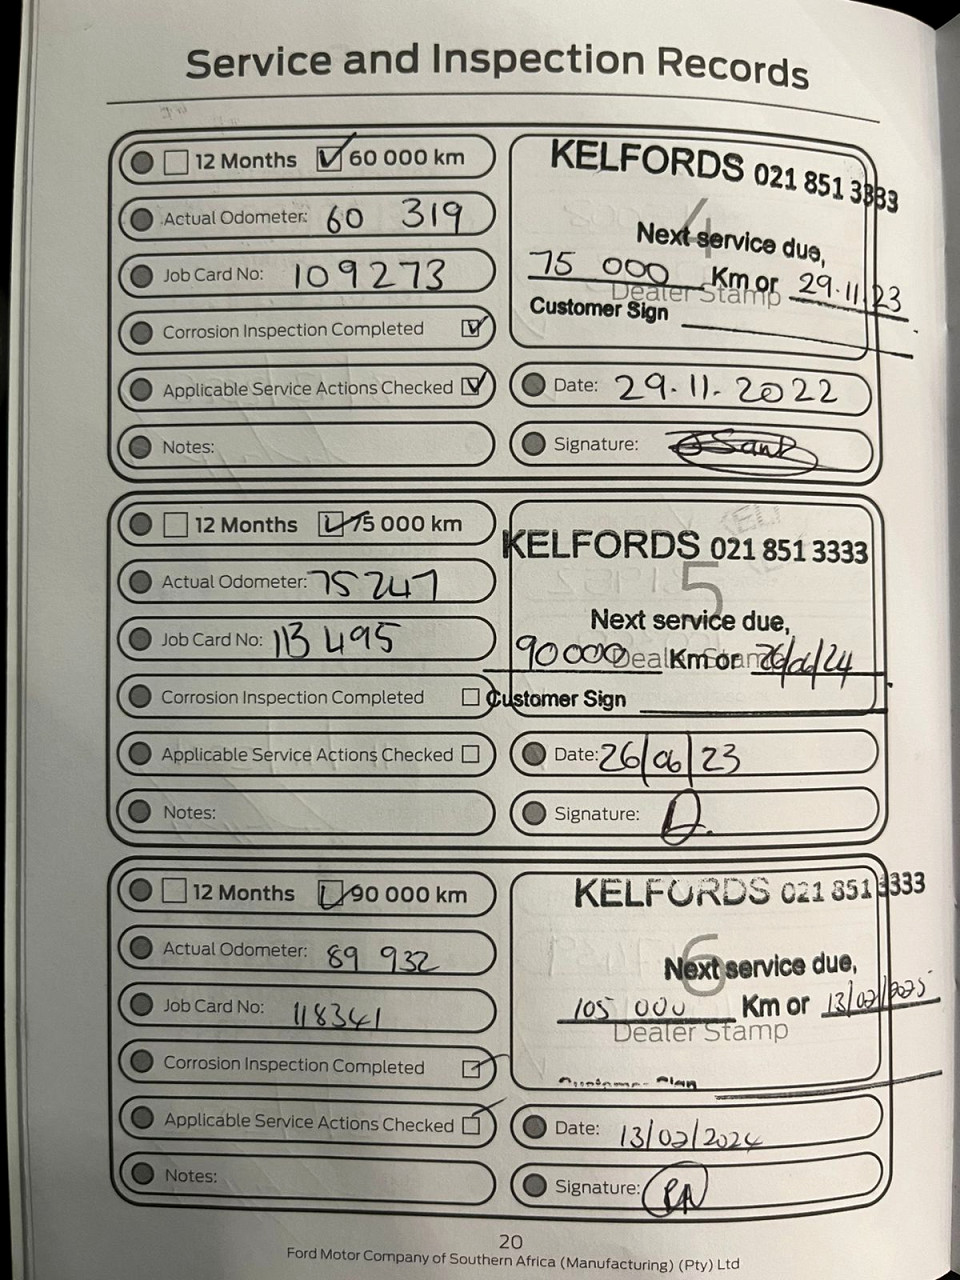 Service and Inspection Records
12 Months 60 000 km
Actual Odometer: 60 319
Job Card No: 109273
Corrosion Inspection Completed
Applicable Service Actions Checked
Notes:
KELFORDS 021 851 3333
4
Next service due,
75 000 Km or 29.11.23
Dealer Stamp
Customer Sign
Date: 29.11.2022
Signature:
12 Months 75 000 km
Actual Odometer: 75 247
Job Card No: 113495
Corrosion Inspection Completed
Applicable Service Actions Checked
Notes:
KELFORDS 021 851 3333
5
Next service due,
90000 Km or 26/06/24
Dealer Stamp
Customer Sign
Date: 26/06/23
Signature:
12 Months 90 000 km
Actual Odometer: 89 932
Job Card No: 118341
Corrosion Inspection Completed
Applicable Service Actions Checked
Notes:
KELFORDS 021 851 3333
6
Next service due,
105 000 Km or 13/02/2025
Dealer Stamp
Date: 13/02/2024
Signature:
20
Ford Motor Company of Southern Africa (Manufacturing) (Pty) Ltd